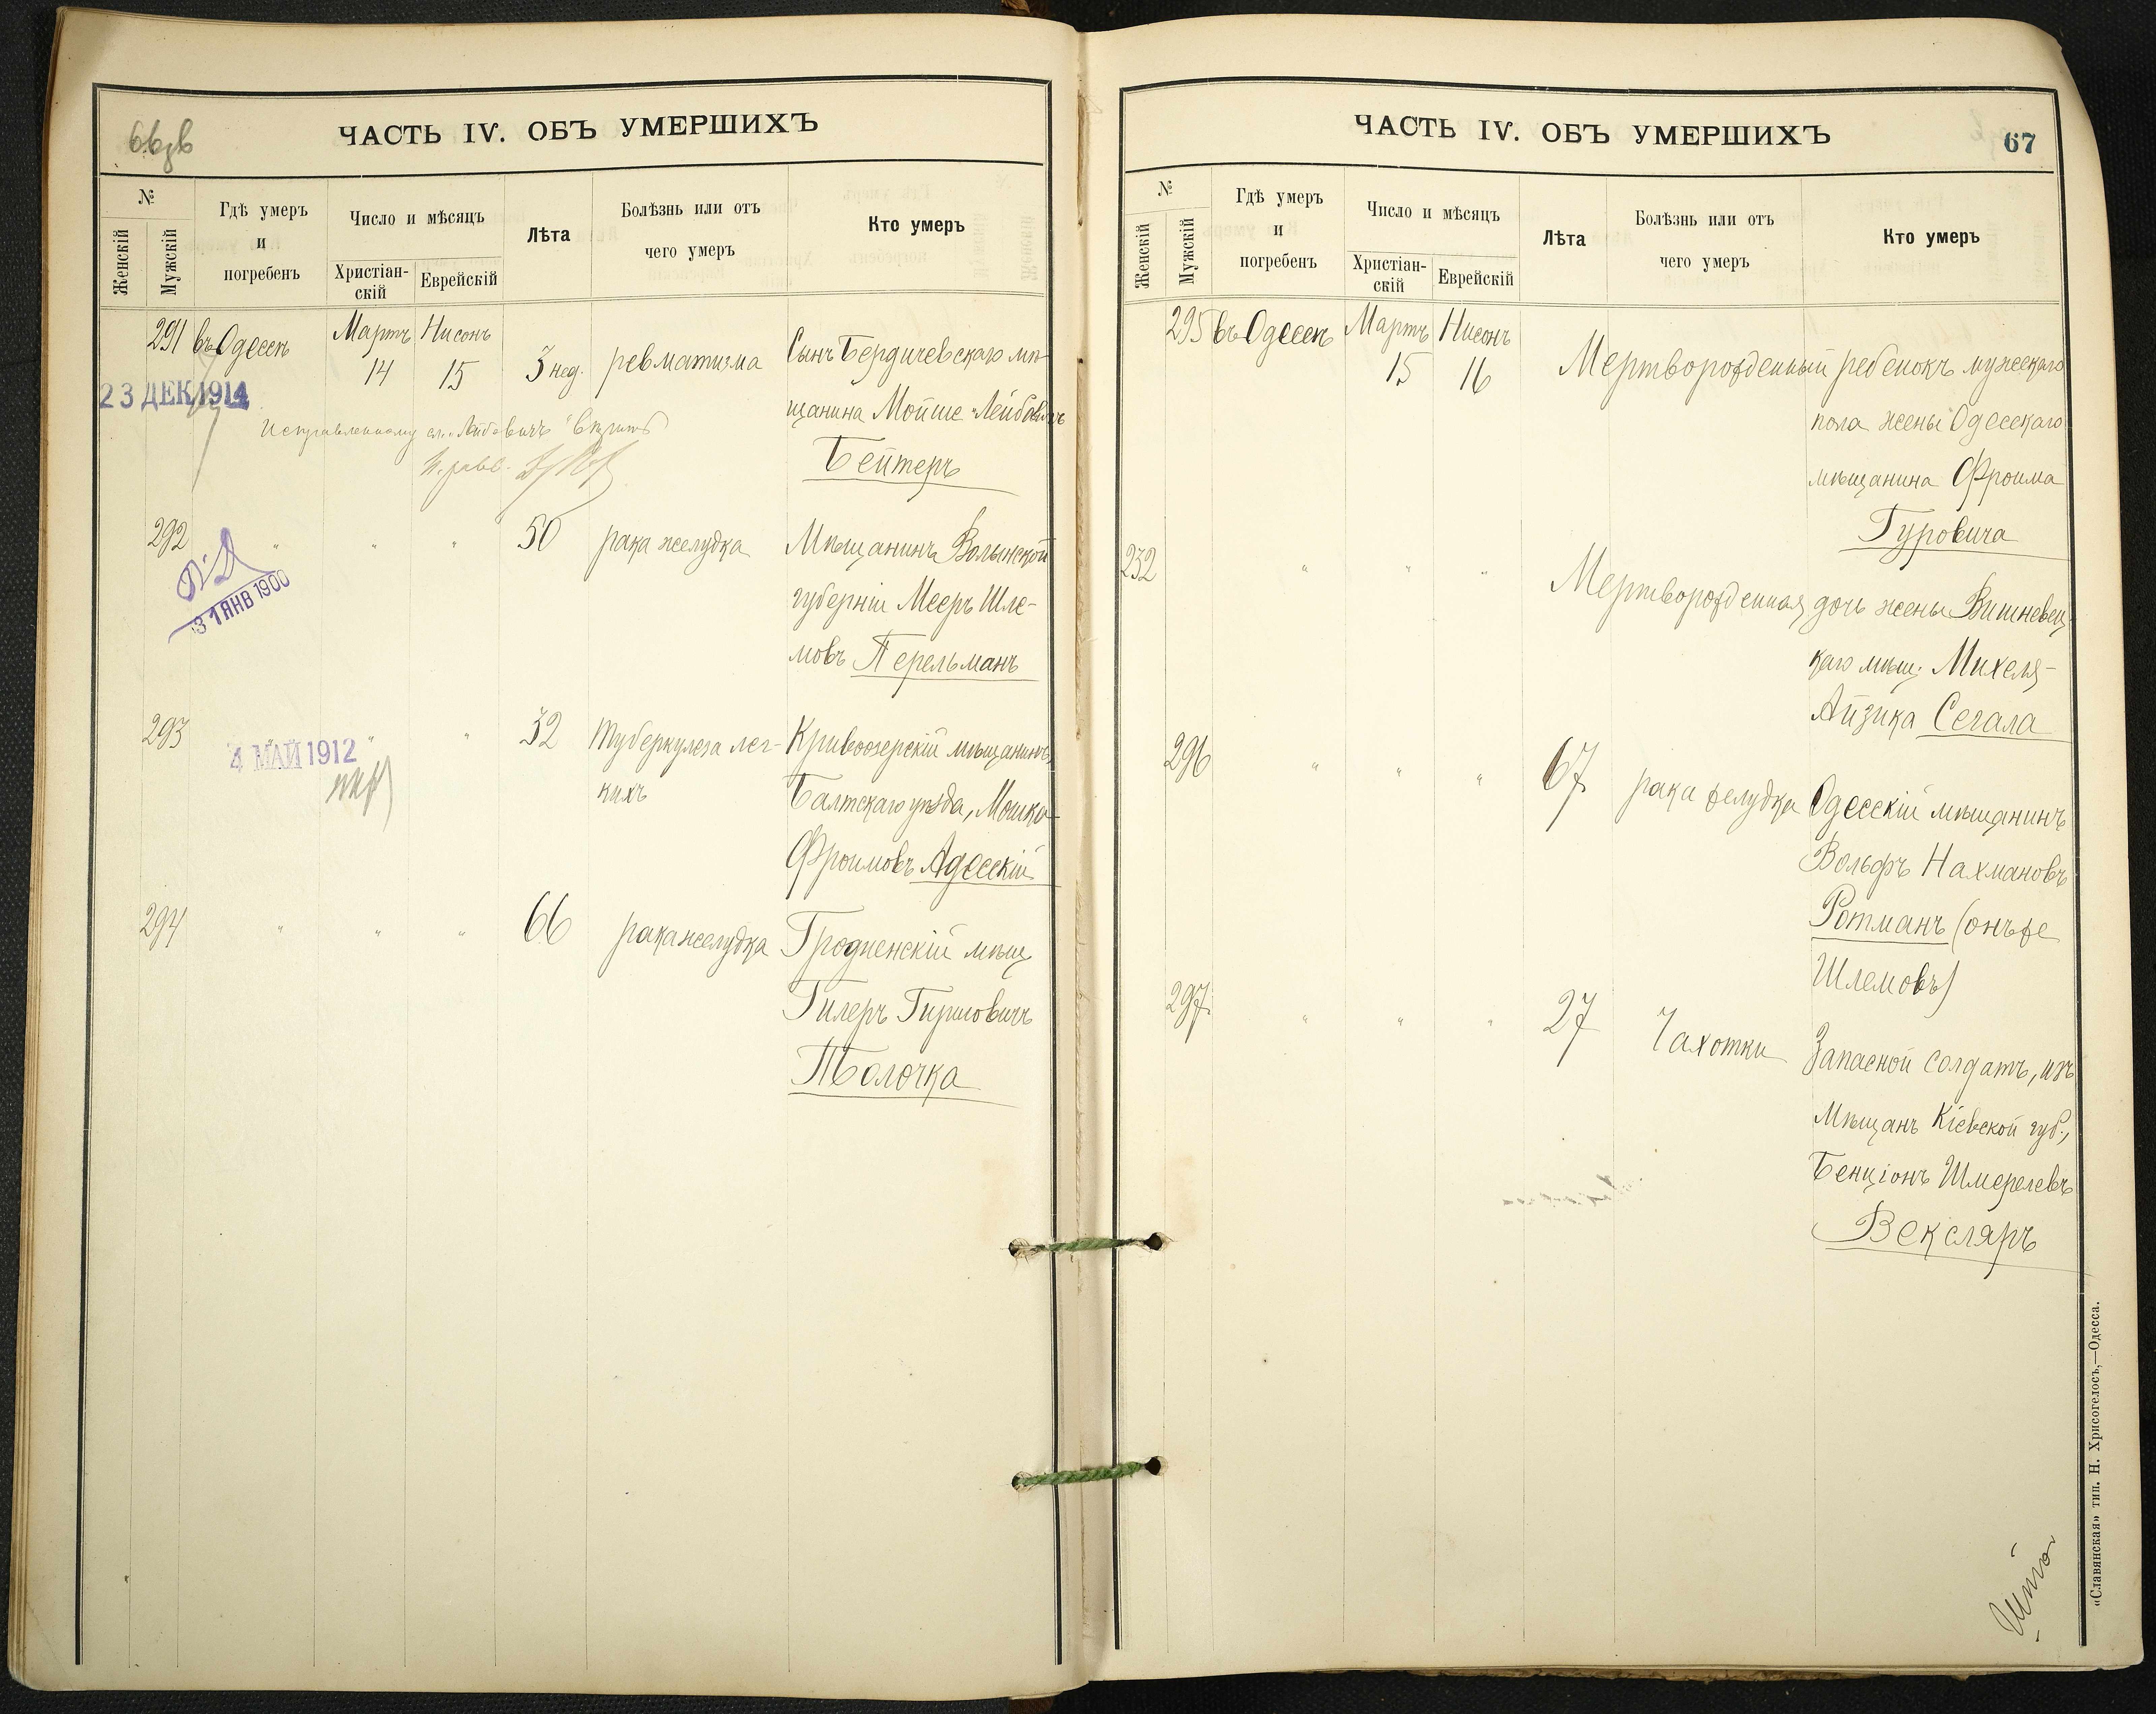 66 об
ЧАСТЬ IV. ОБЪ УМЕРШИХЪ
№
Женскій
Мужскій
Гдѣ умеръ
и
погребенъ
Число и мѣсяцъ
Христіан-
скій
Еврейскій
Лѣта
Болѣзнь или отъ
чего умеръ
Кто умеръ
291 въ Одессѣ Мартъ Нисонъ
14 15 3 нед. ревматизма Сынъ Бердичевскаго мѣ-
щанина Мойше Лейбовичъ
Бейтеръ
23 ДЕК 1914
Исправленному сл. "Лейбовичъ" вѣрить
292 " " " 50 рака желудка Мѣщанинъ Волынской
губерніи Мееръ Шле-
мовъ Перельманъ
31 ЯНВ 1900
293 " " " 32 туберкулеза лег- Кривоозерскій мѣщанинъ,
кихъ Балтскаго уѣзда, Мошко-
Фроимовъ Адесскій
4 МАЙ 1912
294 " " " 66 рака желудка Гродненскій мѣщ.
Гилеръ Гиршовичъ
Пѣолочка
ЧАСТЬ IV. ОБЪ УМЕРШИХЪ
67
№
Женскій
Мужскій
Гдѣ умеръ
и
погребенъ
Число и мѣсяцъ
Христіан-
скій
Еврейскій
Лѣта
Болѣзнь или отъ
чего умеръ
Кто умеръ
295 въ Одессѣ Мартъ Нисонъ
15 16 Мертворожденный ребенокъ мужескаго
пола жены Одесскаго
мѣщанина Фроима
Гуровича
232 " " " Мертворожденная дочь жены Вишневец-
каго мѣщ. Михеля-
Айзика Сегала
296 " " " 67 рака желудка Одесскій мѣщанинъ
Вольфъ Нахмановъ
Ротманъ (онъ же
Шлемовъ)
297 " " " 27 Чахотки Запасной солдатъ, изъ
мѣщанъ Кіевской губ.,
Бенціонъ Шмерелевъ
Вексляръ
«Славянская» тип. Н. Хрисогелосъ,—Одесса.